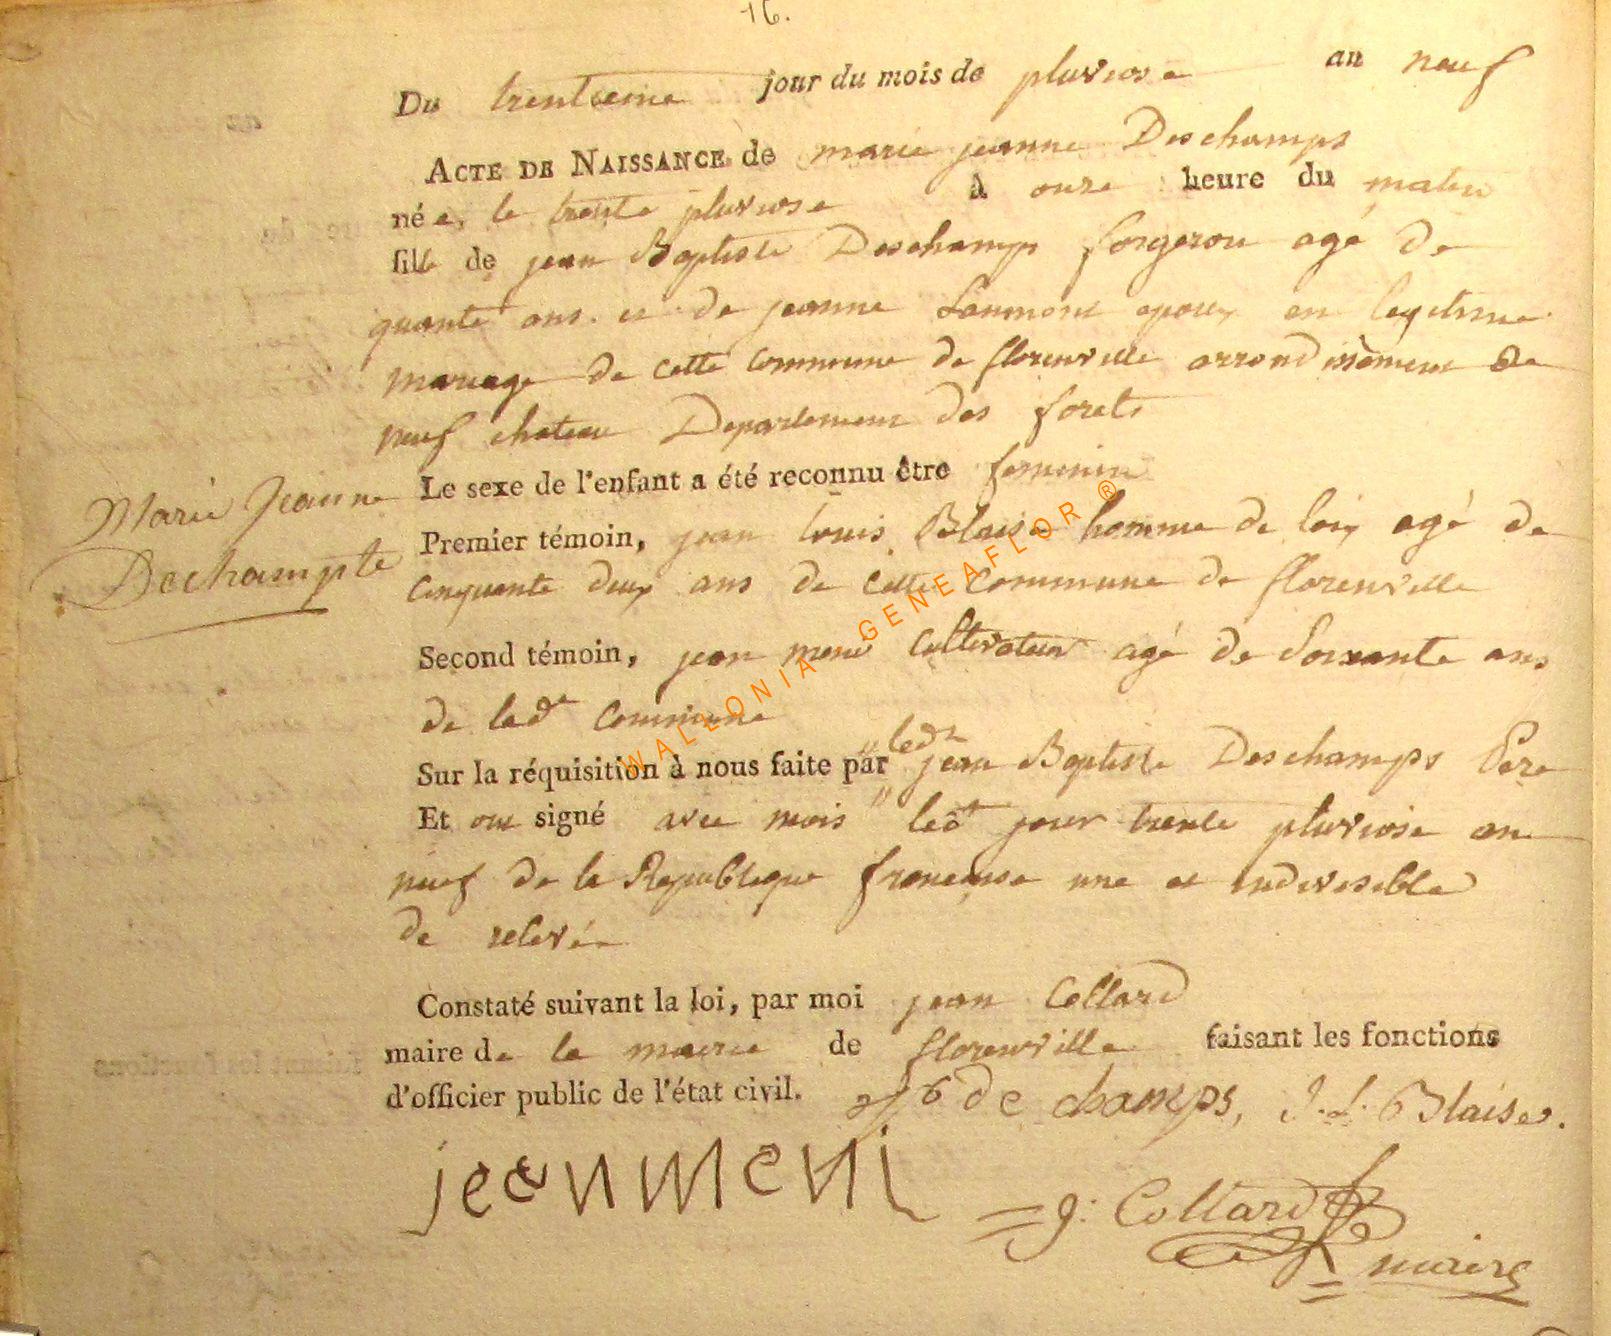 16.
Du trentieme jour du mois de pluviose an neuf
ACTE DE NAISSANCE de marie jeanne Deschamps
née, le trente pluviose à onze heure du matin
fille de jean Baptiste Deschamps forgeron agé de
quante ans. et de jeanne epoux en legitime
mariage de cette commune de florenville arrondissement de
neuf chateau Departement des forets
Marie Jeanne
Dechampte
Le sexe de l'enfant a été reconnu être feminin
Premier témoin, jean louis Blaise homme de loix agé de
cinquante deux ans de cette commune de florenville
Second témoin, jean meni Cultivateur agé de soixante ans
de ladte commune
Sur la réquisition à nous faite par ledt jean Baptiste Deschamps Pere
Et ont signé avec mois ledt jour trente pluviose an
neuf de la Republique francaise une et indivisible
de relevée
Constaté suivant la loi, par moi jean Collard
maire de la mairie de florenville faisant les fonctions
d'officier public de l'état civil.
de champs, J. L. Blaise.
jeanmeni
J: Collard
maire
WALLONIA GENEAFLOR ®